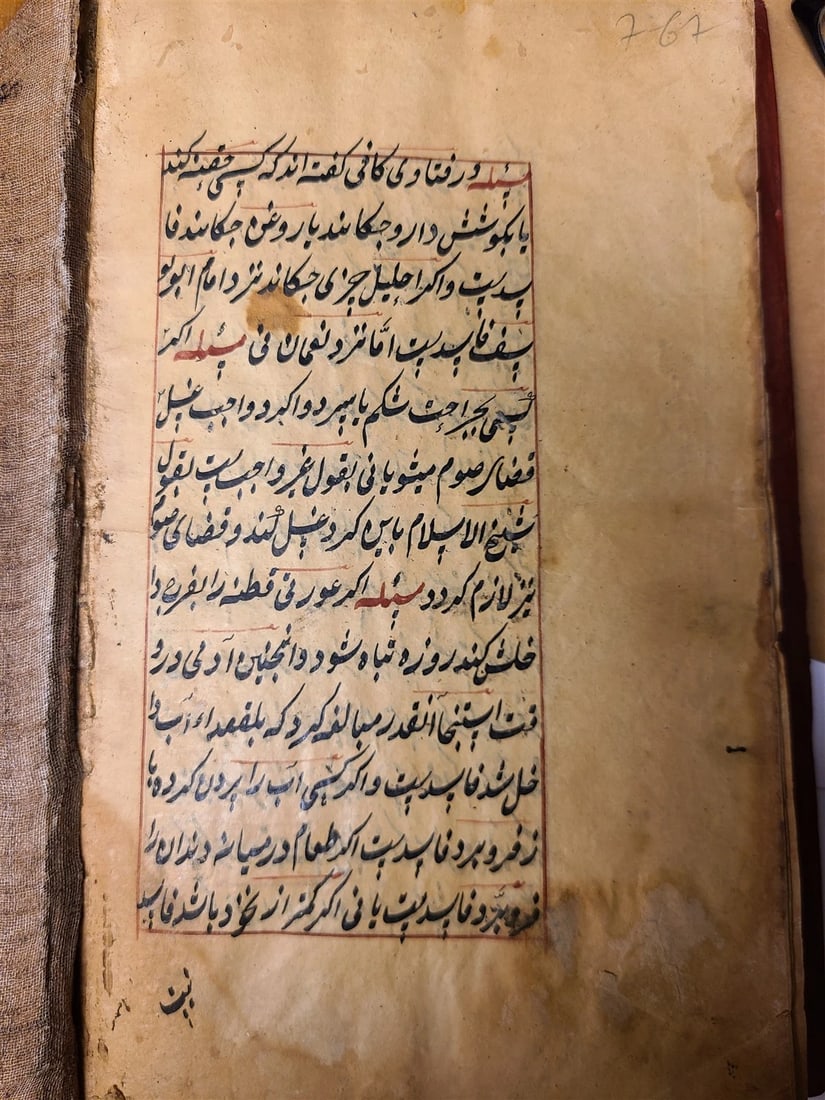 7-67
مسئله در فتاوی کافی گفته اند که کسی حقنه کند
یا بگوشش دارو چکانند یا روغن چکانند فا
سد یست واگر احلیل چیزی چکانند نزد امام ابو یو
سف فاسد یست امّا نزد نعمان نی مسئله اگر
کسی بجراحت شکم یا سپرد واگرد واجب غسل
قضای صوم میشود یا نی بقول غیر واجب ست بقول
شیخ الاسلام باین گردد غسل کند و قضای صوم
نیز لازم گردد مسئله اگر عورتی قطنه را بفرج دا
خلش کند روزه تباه شود وانچنین آدمی در و
قت استنجا آنقدر مبالغه کرد که بمقعد اء آب دا
خل شد فاسد یست واگر کسی آب را بردن کرده با
ز فرو برد فاسد یست اگر طعام در میانه دندان را
فرو برد فاسد یست یا نی اگر کمتر از نخود باشد فاسد
نیست